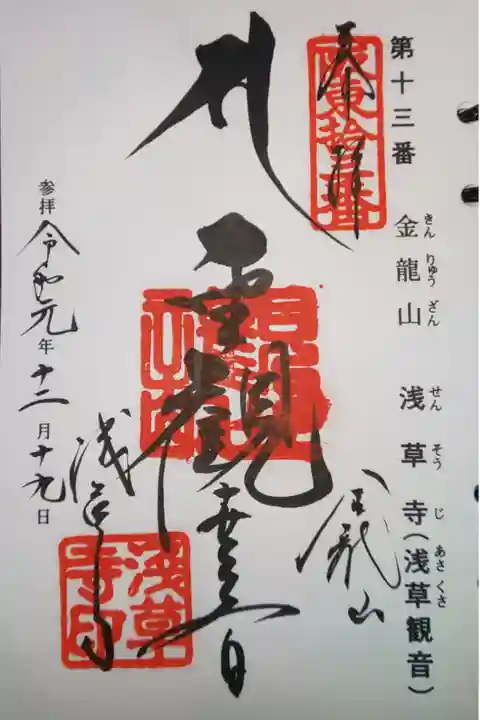 第十三番 金龍山 浅草寺(浅草観音)
きんりゅうざん せんそうじ あさくさ
坂東拾三番
奉拝
金龍山
聖観世音
浅草寺
浅草寺印
参拝 令和元年十二月十九日